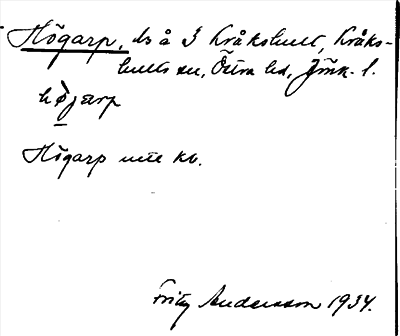 Högarp, ds å 3 Kråkshult, Kråks-
hults sn, Östra hd, Jönk. l.
högarp
Högarp ute kb.
Fritz Andersson 1934.